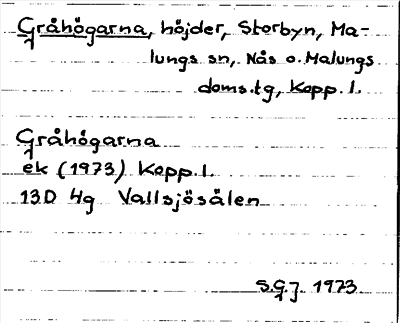 Gråhögarna, höjder, Storbyn, Ma-
lungs sn, Nås o. Malungs
doms.tg, Kopp. l.
Gråhögarna
ek (1973) Kopp. l.
13D 4g Vallsjösälen
S.G.J. 1973